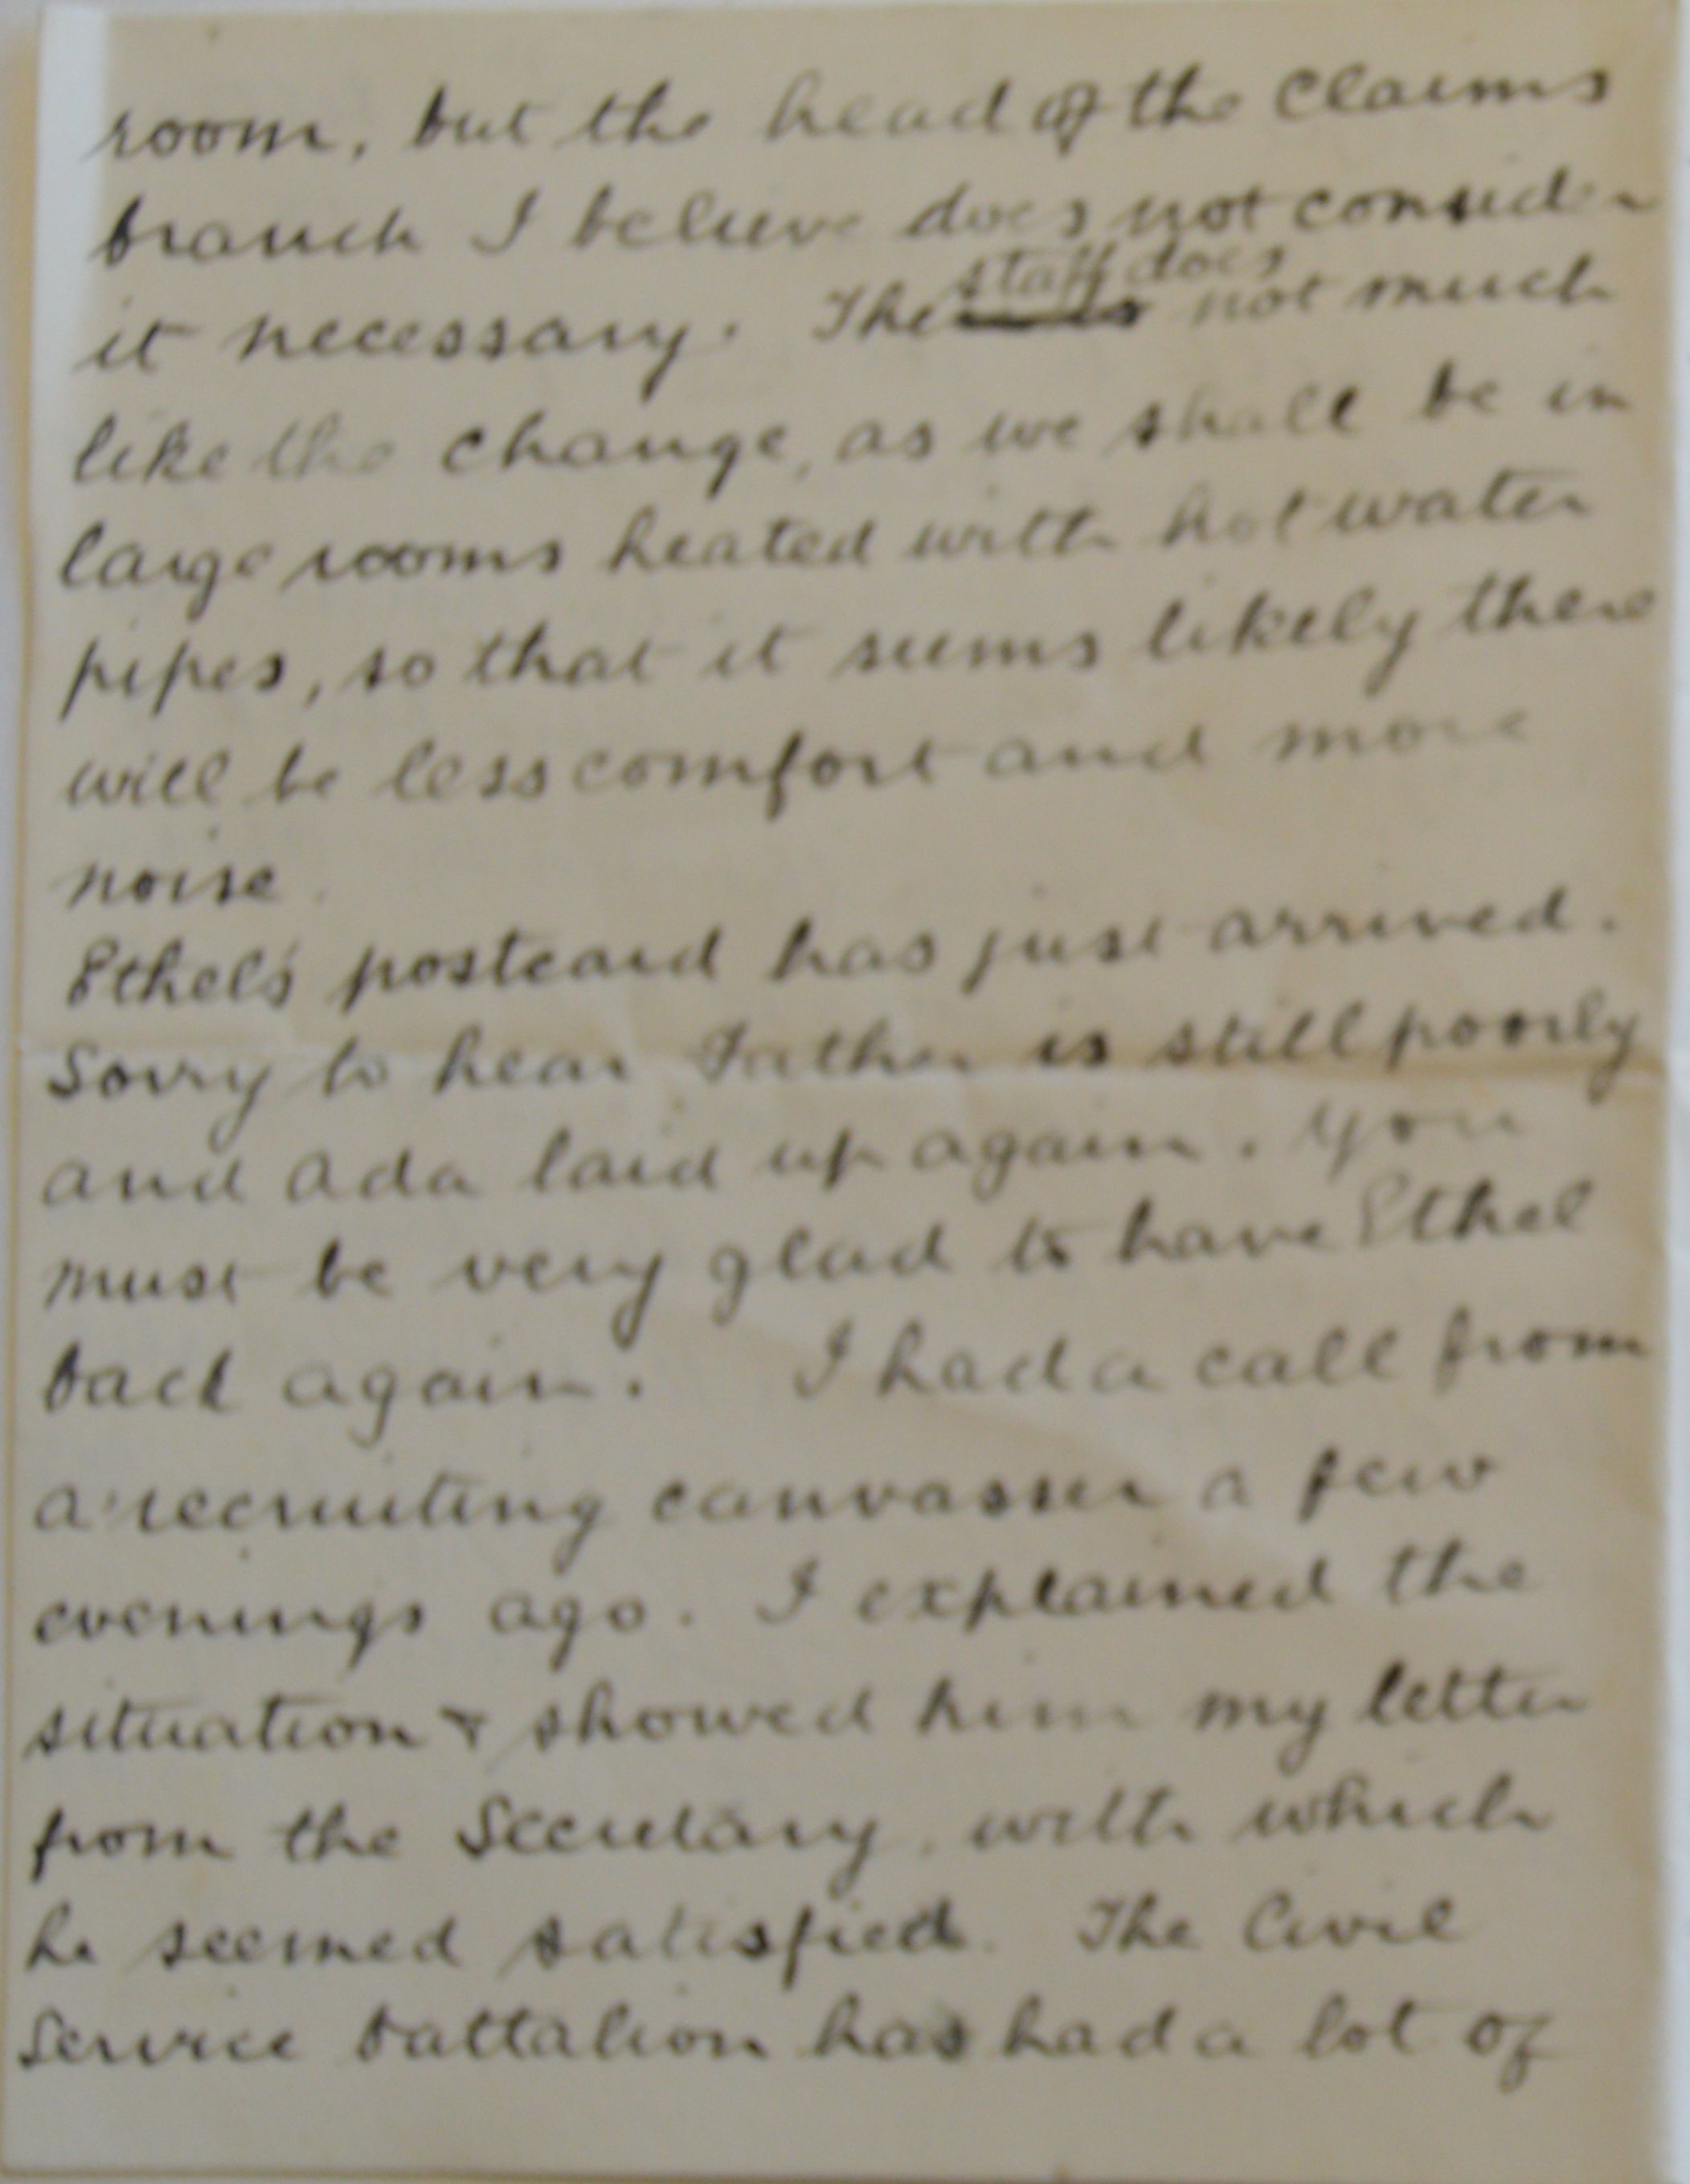 room, but the head of the claims
branch I believe does not consider
it necessary. The staff does not much
like the change, as we shall be in
large rooms heated with hot water
pipes, so that it seems likely there
will be less comfort and more
noise.
Ethel's postcard has just arrived.
Sorry to hear Father is still poorly
and Ada laid up again. You
must be very glad to have Ethel
back again. I had a call from
a recruiting canvasser a few
evenings ago. I explained the
situation & showed him my letter
from the Secretary, with which
he seemed satisfied. The Civil
Service battalion has had a lot of